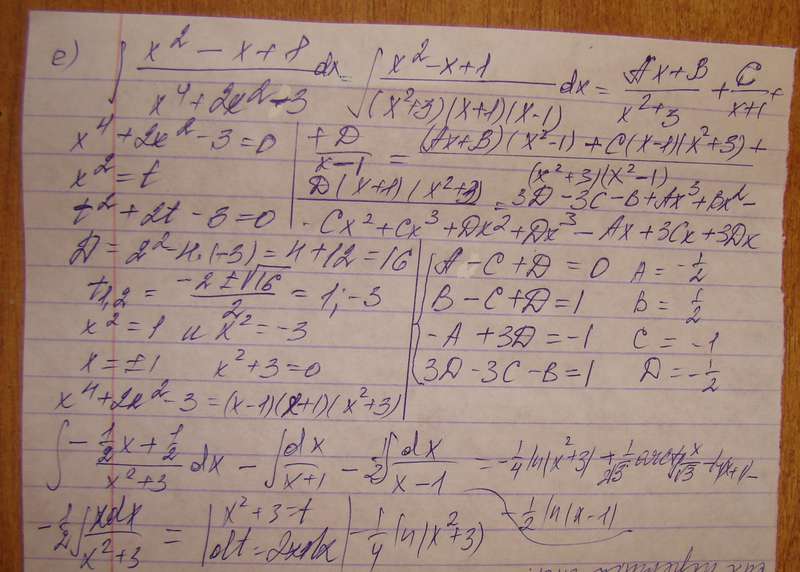 е) ∫ (x² - x + 8)/(x⁴ + 2x² - 3) dx = ∫ (x² - x + 1)/((x² + 3)(x + 1)(x - 1)) dx = (Ax + B)/(x² + 3) + C/(x + 1) +
+ D/(x - 1) = ((Ax + B)(x² - 1) + C(x - 1)(x² + 3) +
D(x + 1)(x² + 3))/((x² + 3)(x² - 1)) = 3D - 3C - B + Ax³ + Bx² -
- Cx² + Cx³ + Dx² + Dx³ - Ax + 3Cx + 3Dx
x⁴ + 2x² - 3 = 0
x² = t
t² + 2t - 3 = 0
D = 2² - 4·(-3) = 4 + 12 = 16
t₁,₂ = (-2 ± √16)/2 = 1; -3
x² = 1 и x² = -3
x = ±1 x² + 3 = 0
x⁴ + 2x² - 3 = (x - 1)(x + 1)(x² + 3)
A - C + D = 0 A = -1/2
B - C + D = 1 B = 1/2
-A + 3D = -1 C = -1
3D - 3C - B = 1 D = -1/2
∫ (-1/2 x + 1/2)/(x² + 3) dx - ∫ dx/(x + 1) - 1/2 ∫ dx/(x - 1) = -1/4 ln(x² + 3) + 1/(2√3) arctg x/√3 - ln(x + 1) -
- 1/2 ln(x - 1)
-1/2 ∫ xdx/(x² + 3) = | x² + 3 = t
dt = 2xdx | - 1/4 ln(x² + 3)